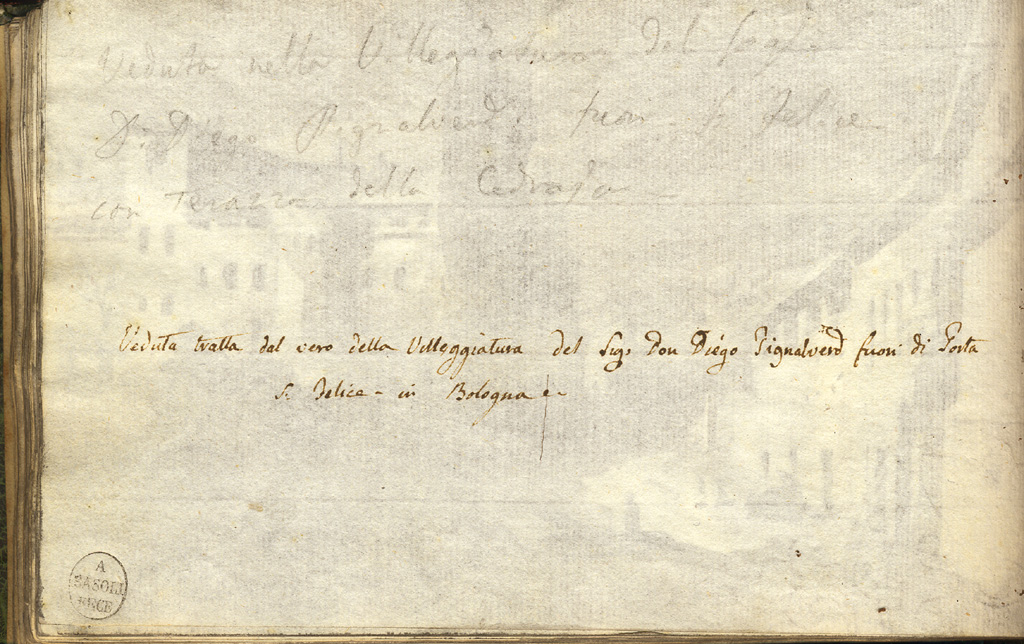 Veduta nella Villegiatura del Sigr
Dn. Diego Pignalverd fuori S. Felice
con Terazza della Cedraja
Veduta tratta dal vero della Villeggiatura del Sigr. Don Diégo Pignalverd fuori di Porta
S. Felice - in Bologna
A
BASOLI
FECE